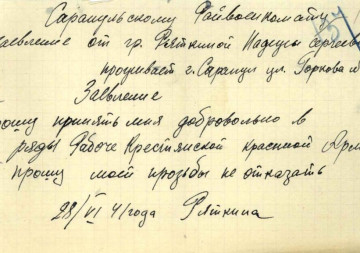 Сарапульскому Райвоенкомату
Заявление от гр. Ряткиной Надежды Сергеев
проживает г. Сарапул ул. Горкова
Заявление
рошу принять меня добровольно в
ряды Рабоче Крестянской красной Арм
прошу моей прозьбы не отказать
28/VI 41 года Ряткина